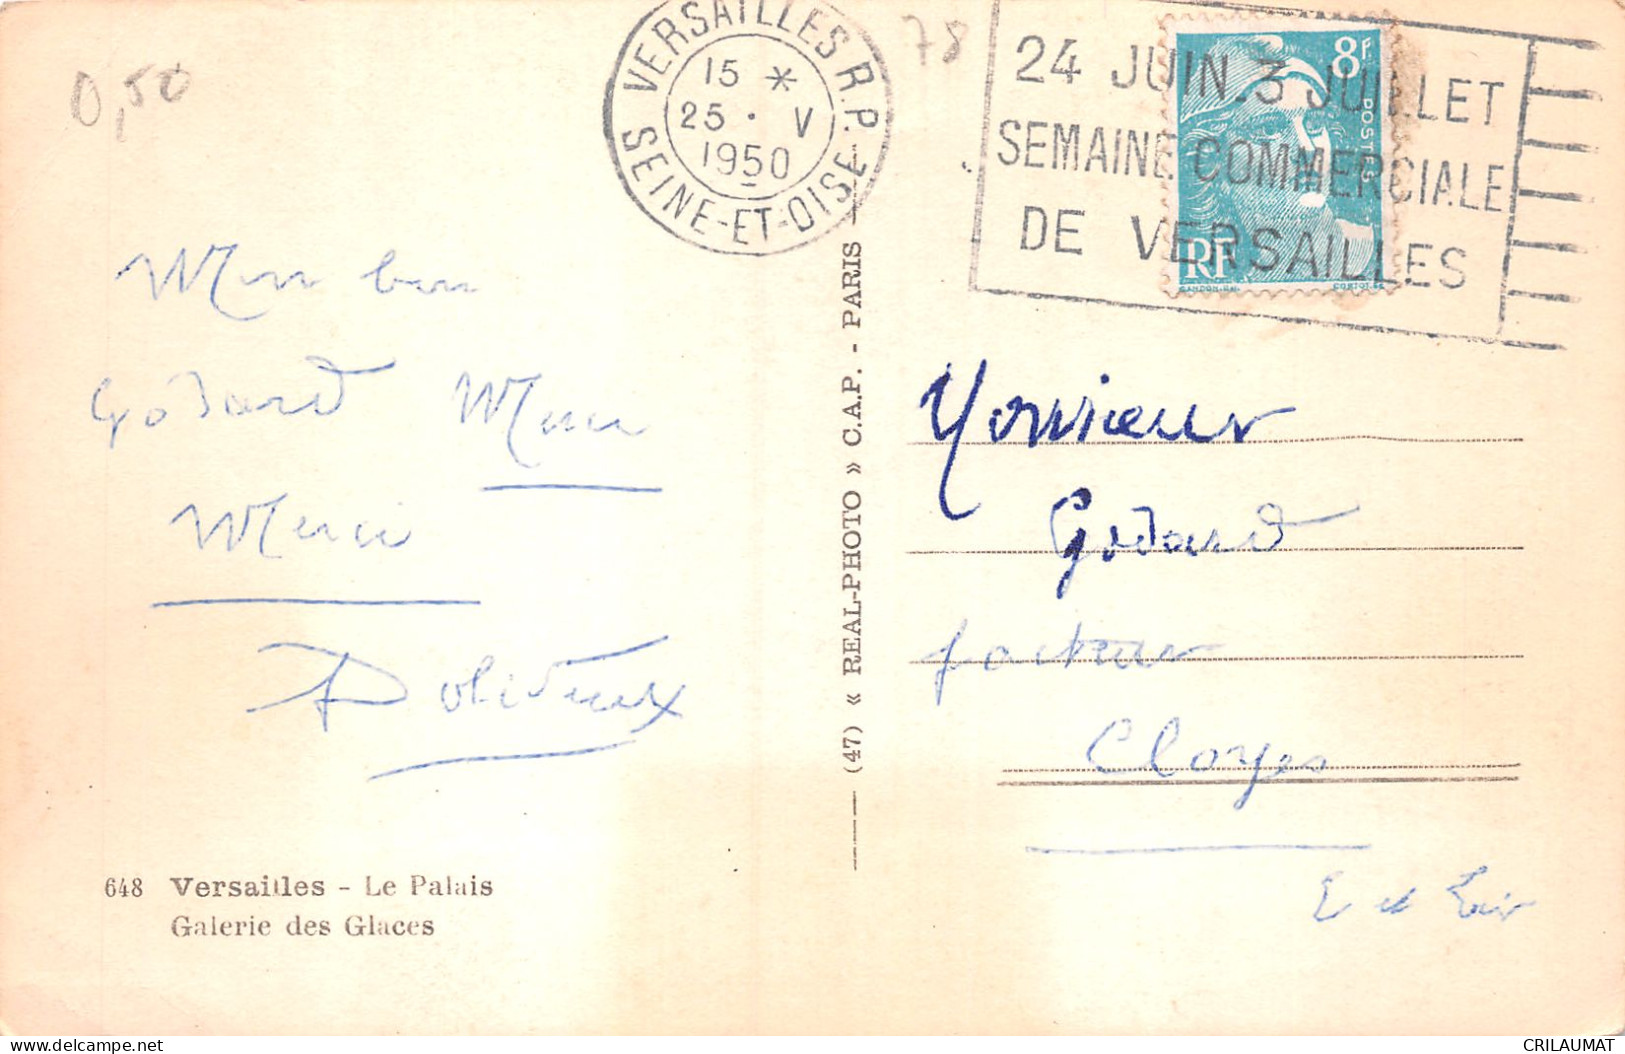 0,50
78
VERSAILLES R.P.
15 *
25 · V
1950
SEINE-ET-OISE
24 JUIN_3 JUILLET
SEMAINE COMMERCIALE
DE VERSAILLES
8F
POSTES
RF
GANDON
CORTOT
Mon bon
Godard Merci
Merci
648 Versailles - Le Palais
Galerie des Glaces
(47) « REAL-PHOTO » C.A.P. - PARIS
Monsieur
Godard
facteur
Cloyes
E et Loir
CRILAUMAT